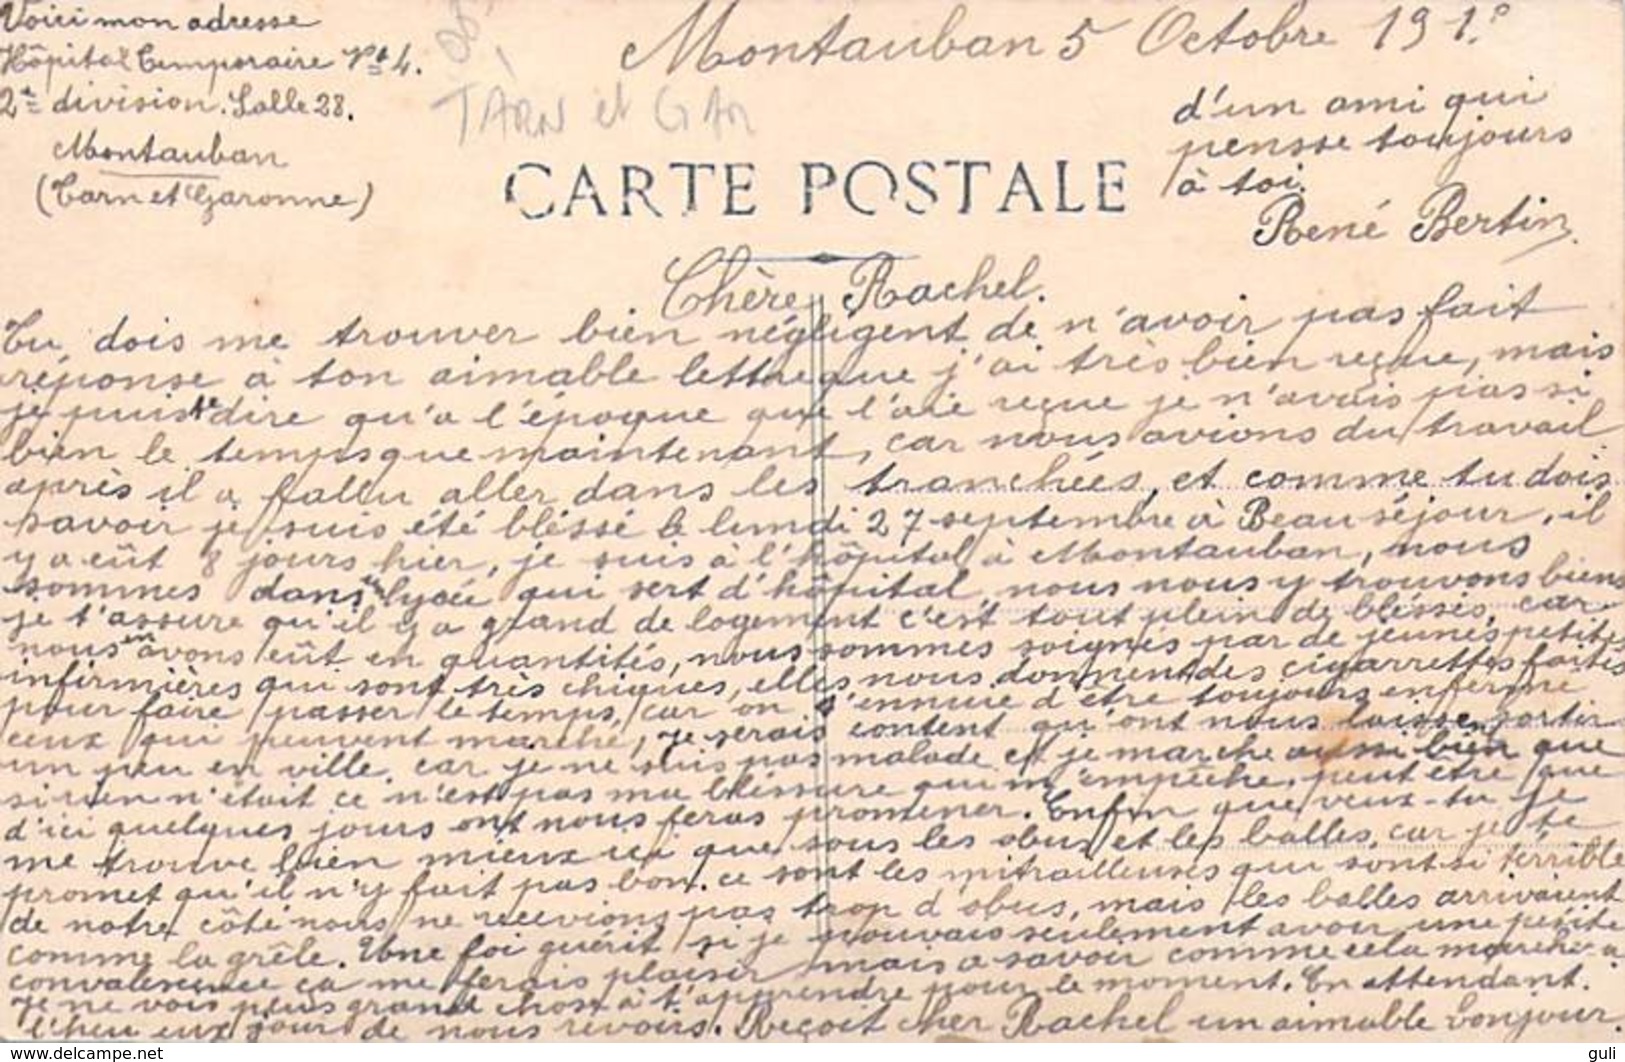 Voici mon adresse
Hôpital Temporaire No 4.
2e division. Salle 28.
Montauban
(Tarn et Garonne)
TARN et GAR
Montauban 5 Octobre 191
CARTE POSTALE
Chère Rachel.
Tu dois me trouver bien négligent de n'avoir pas fait
réponse à ton aimable lettre que j'ai très bien reçue, mais
je puis te dire qu'a l'époque que l'aie reçue je n'avais pas si
bien le temps que maintenant, car nous avions du travail
après il a fallu aller dans les tranchées, et comme tu dois
savoir je suis été bléssé le lundi 27 septembre à Beauséjour, il
y a eût 8 jours hier, je suis à l'hôpital à Montauban, nous
sommes dans un lycée qui sert d'hôpital, nous nous y trouvons biens
je t'assure qu'il y a grand de logement c'est tout plein de bléssés, car
nous en avons eût en quantités, nous sommes soignés par de jeunes petites
infirmières qui sont très chiques, elles nous donnent des cigarrettes faites
pour faire passer le temps, car on s'ennuie d'être toujours enfermé
ceux qui peuvent marché, je serais content qu'ont nous laisse sortir
un peu en ville, car je ne suis pas malade et je marche aussi bien que
si rien n'était ce n'est pas ma bléssure qui m'empêche, peut être que
d'ici quelques jours ont nous feras promener. Enfin que veux-tu je
me trouve bien mieux ici que sous les obus et les balles, car je te
promet qu'il n'y fait pas bon. ce sont les mitrailleuses qui sont si terrible
de notre côté nous ne recevions pas trop d'obus, mais les balles arrivaient
comme la grêle. Une foi guérit si je pouvais seulement avoir une petite
convalescence ça me ferais plaisir mais a savoir comme cela marche a
Je ne vois plus grand chose à t'apprendre pour le moment. En attendant.
l'heureux jour de nous revoir. Reçoit cher Rachel un aimable bonjour.
d'un ami qui
pensse toujours
à toi.
René Bertin
delcampe.net
guli